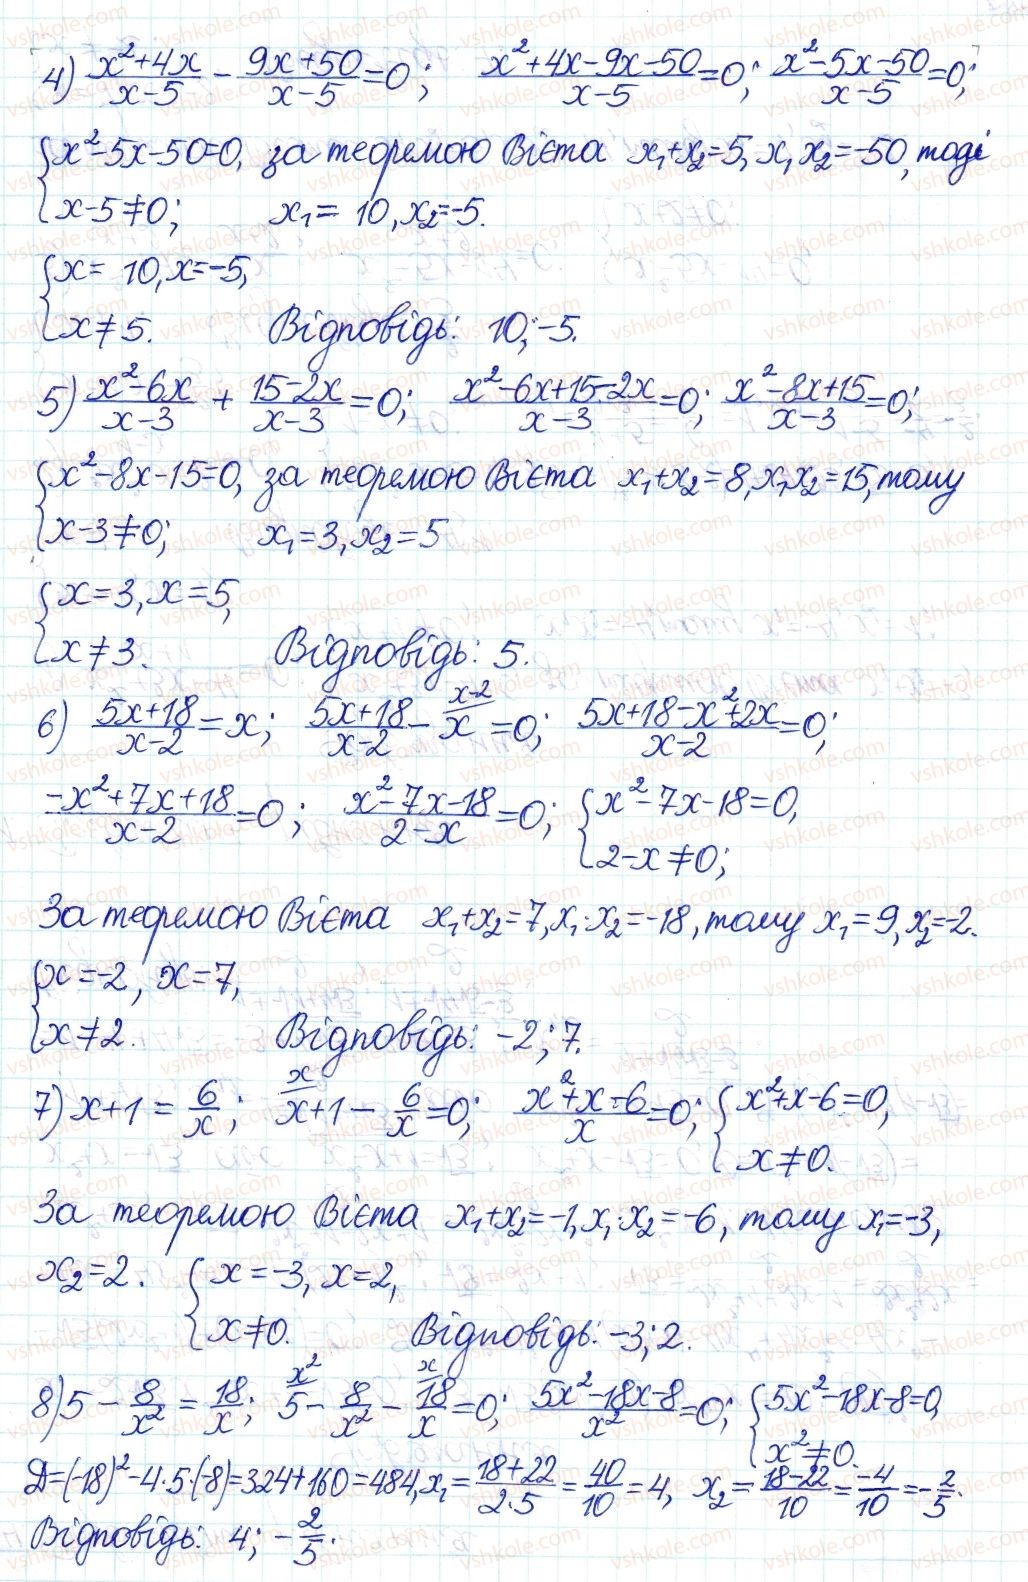 4) (x²+4x)/(x-5) - (9x+50)/(x-5) = 0; (x²+4x-9x-50)/(x-5) = 0; (x²-5x-50)/(x-5) = 0;
{x²-5x-50=0, за теоремою Вієта x₁+x₂=5, x₁x₂=-50, тоді
{x-5≠0; x₁= 10, x₂=-5.
{x= 10, x=-5,
{x≠5. Відповідь: 10; -5.
5) (x²-6x)/(x-3) + (15-2x)/(x-3) = 0; (x²-6x+15-2x)/(x-3) = 0; (x²-8x+15)/(x-3) = 0;
{x²-8x-15=0, за теоремою Вієта x₁+x₂=8, x₁x₂=15, тому
{x-3≠0; x₁=3, x₂=5
{x=3, x=5,
{x≠3. Відповідь: 5.
6) (5x+18)/(x-2) = x; (5x+18)/(x-2) - x^(x-2) = 0; (5x+18-x²+2x)/(x-2) = 0;
(-x²+7x+18)/(x-2) = 0; (x²-7x-18)/(2-x) = 0; {x²-7x-18=0,
{2-x≠0;
За теоремою Вієта x₁+x₂=7, x₁·x₂=-18, тому x₁=9, x₂=-2.
{x=-2, x=7,
{x≠2. Відповідь: -2; 7.
7) x+1 = 6/x; x/ x+1 - 6/x = 0; (x²+x-6)/x = 0; {x²+x-6=0,
{x≠0.
За теоремою Вієта x₁+x₂=-1, x₁·x₂=-6, тому x₁=-3,
x₂=2. {x=-3, x=2,
{x≠0. Відповідь: -3; 2.
8) 5 - 8/x² = 18/x; x²/ 5 - 8/x² - x/ 18/x = 0; (5x²-18x-8)/x² = 0; {5x²-18x-8=0,
{x²≠0.
Д=(-18)²-4·5·(-8)=324+160=484, x₁=(18+22)/(2·5)=40/10=4, x₂=(18-22)/10=-4/10=-2/5.
Відповідь: 4; -2/5.
vshkole.com